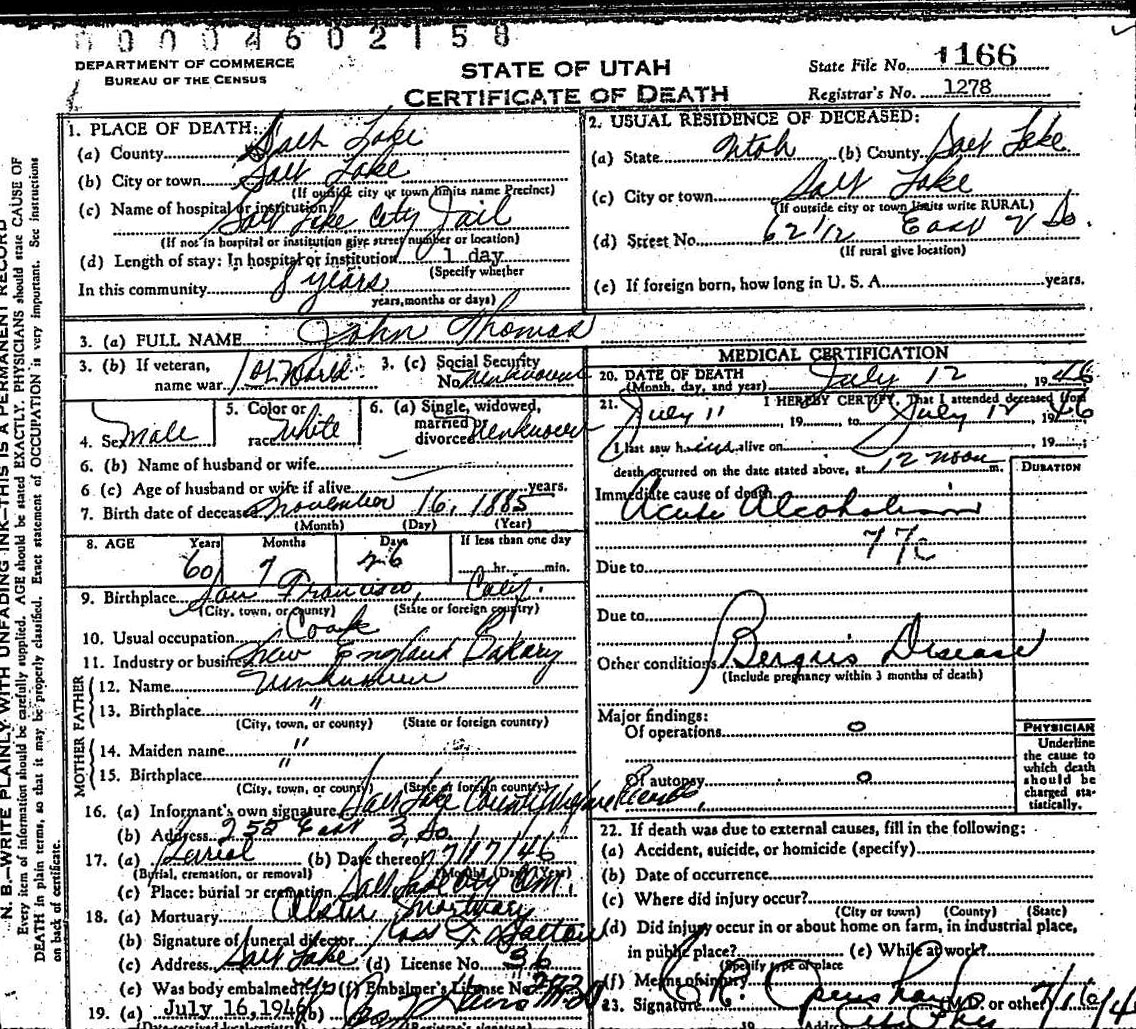 00004602158
DEPARTMENT OF COMMERCE
BUREAU OF THE CENSUS
STATE OF UTAH
CERTIFICATE OF DEATH
State File No. 1166
Registrar's No. 1278
1. PLACE OF DEATH:
(a) County Salt Lake
(b) City or town Salt Lake
(If outside city or town limits name Precinct)
(c) Name of hospital or institution:
Salt Lake City Jail
(If not in hospital or institution give street number or location)
(d) Length of stay: In hospital or institution 1 day
(Specify whether
In this community 8 years
years, months or days)
2. USUAL RESIDENCE OF DECEASED:
(a) State Utah (b) County Salt Lake
(c) City or town Salt Lake
(If outside city or town limits write RURAL)
(d) Street No. 62 1/2 East 2 So.
(If rural give location)
(e) If foreign born, how long in U. S. A. years.
3. (a) FULL NAME John Thomas
3. (b) If veteran, name war 1st World 3. (c) Social Security No. Unknown
4. Sex Male 5. Color or race White 6. (a) Single, widowed, married or divorced Unknown
6. (b) Name of husband or wife
6 (c) Age of husband or wife if alive years.
7. Birth date of deceased November 16, 1885
(Month) (Day) (Year)
8. AGE Years Months Days If less than one day
60 7 26 hr. min.
9. Birthplace San Francisco, Calif.
(City, town, or county) (State or foreign country)
10. Usual occupation Cook
11. Industry or business New England Bakery
MOTHER FATHER
12. Name Unknown
13. Birthplace "
(City, town, or county) (State or foreign country)
14. Maiden name "
15. Birthplace "
(City, town, or county) (State or foreign country)
16. (a) Informant's own signature Salt Lake County Welfare Records
(b) Address 258 East 3 So
17. (a) Burial (b) Date thereof 7/17/46
(Burial, cremation, or removal) (Month) (Day) (Year)
(c) Place: burial or cremation Salt Lake City Cem.
18. (a) Mortuary Mortuary
(b) Signature of funeral director
(c) Address Salt Lake (d) License No. 36
(e) Was body embalmed? (f) Embalmer's License No.
19. (a) July 16, 1946 (b)
(Date received local registrar) (Registrar's signature)
MEDICAL CERTIFICATION
20. DATE OF DEATH July 12, 1946
(Month, day, and year)
21. I HEREBY CERTIFY, That I attended deceased from
July 11, 19 to July 12 1946
I last saw him alive on 19
death occurred on the date stated above, at 12 noon m.
DURATION
Immediate cause of death
Acute Alcoholism
77c
Due to
Due to
Other conditions Bergris Disease
(Include pregnancy within 3 months of death)
Major findings:
Of operations 0
Of autopsy 0
PHYSICIAN
Underline
the cause to
which death
should be
charged sta-
tistically.
22. If death was due to external causes, fill in the following:
(a) Accident, suicide, or homicide (specify)
(b) Date of occurrence
(c) Where did injury occur?
(City or town) (County) (State)
(d) Did injury occur in or about home on farm, in industrial place,
in public place? (e) While at work?
(Specify type of place
(f) Means of injury
23. Signature (M.D. or other 7/16/4
19 Addr
N. B.—WRITE PLAINLY WITH UNFADING INK—THIS IS A PERMANENT RECORD
Every item of information should be carefully supplied. AGE should be stated EXACTLY. PHYSICIANS should state CAUSE OF
DEATH in plain terms, so that it may be properly classified. Exact statement of OCCUPATION is very important. See instructions
on back of certificate.